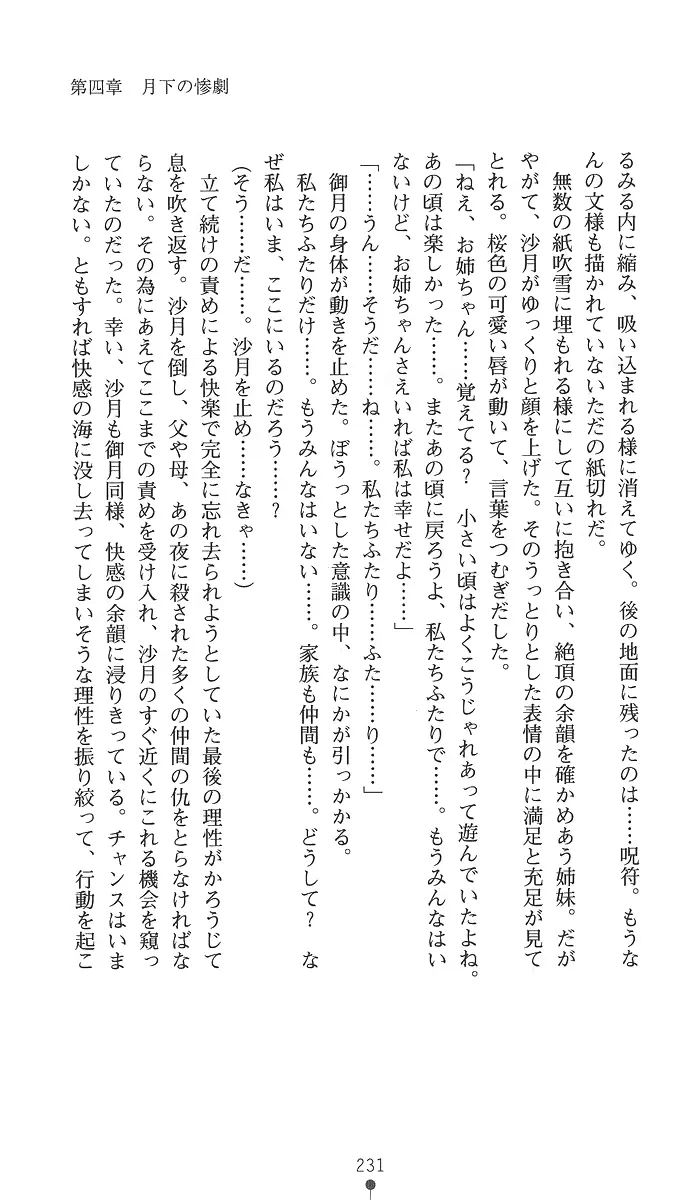 第四章　月下の惨劇
るみる内に縮み、吸い込まれる様に消えてゆく。後の地面に残ったのは……呪符。もうな
んの文様も描かれていないただの紙切れだ。
　無数の紙吹雪に埋もれる様にして互いに抱き合い、絶頂の余韻を確かめあう姉妹。だが
やがて、沙月がゆっくりと顔を上げた。そのうっとりとした表情の中に満足と充足が見て
とれる。桜色の可愛い唇が動いて、言葉をつむぎだした。
「ねえ、お姉ちゃん……覚えてる？　小さい頃はよくこうじゃれあって遊んでいたよね。
あの頃は楽しかった……。またあの頃に戻ろうよ、私たちふたりで……。もうみんなはい
ないけど、お姉ちゃんさえいれば私は幸せだよ……」
「……うん……そうだ……ね……。私たちふたり……ふた……り……」
　御月の身体が動きを止めた。ぼうっとした意識の中、なにかが引っかかる。
　私たちふたりだけ……。もうみんなはいない……。家族も仲間も……。どうして？　な
ぜ私はいま、ここにいるのだろう……？
（そう……だ……。沙月を止め……なきゃ……）
　立て続けの責めによる快楽で完全に忘れ去られようとしていた最後の理性がかろうじて
息を吹き返す。沙月を倒し、父や母、あの夜に殺された多くの仲間の仇をとらなければな
らない。その為にあえてここまでの責めを受け入れ、沙月のすぐ近くにこれる機会を窺っ
ていたのだった。幸い、沙月も御月同様、快感の余韻に浸りきっている。チャンスはいま
しかない。ともすれば快感の海に没し去ってしまいそうな理性を振り絞って、行動を起こ
231